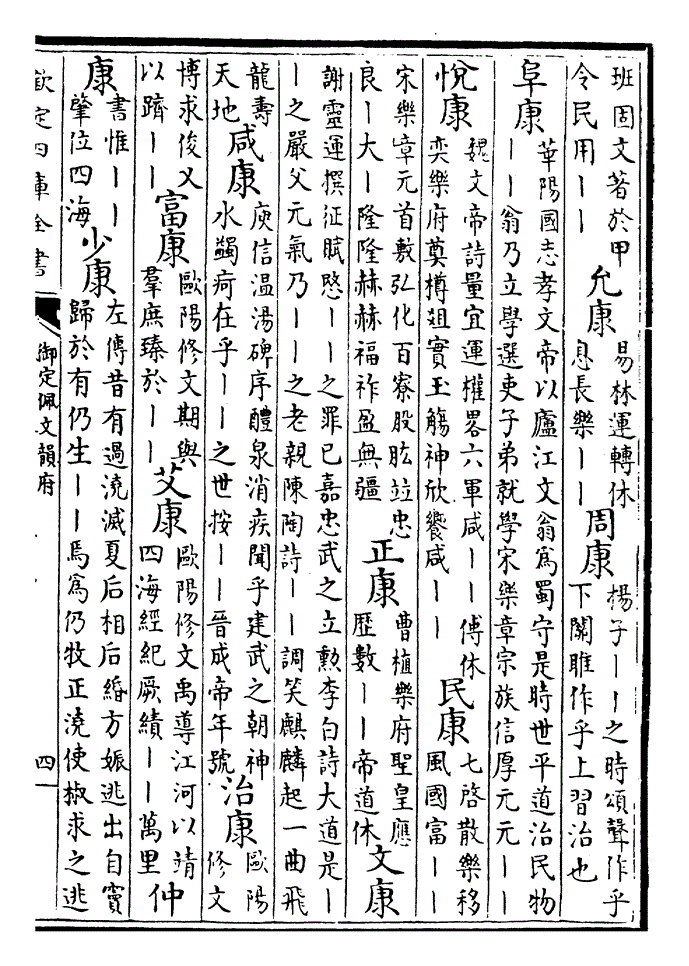 班固文著於甲
令民用丨丨
允康
易林運轉休
息長樂丨丨
周康
楊子丨丨之時頌聲作乎
下關雎作乎上習治也
阜康
華陽國志孝文帝以廬江文翁為蜀守是時世平道治民物
丨丨翁乃立學選吏子弟就學宋樂章宗族信厚元元丨丨
悅康
魏文帝詩量宜運權畧六軍咸丨丨傅休
奕樂府奠樽爼實玉觴神欣饗咸丨丨
民康
七啓散樂移
風國富丨丨
宋樂章元首敷弘化百寮股肱竝忠
良丨大丨隆隆赫赫福祚盈無疆
正康
曹植樂府聖皇應
歷數丨丨帝道休
文康
謝靈運撰征賦愍丨丨之罪已嘉忠武之立勲李白詩大道是丨
丨之嚴父元氣乃丨丨之老親陳陶詩丨丨調笑麒麟起一曲飛
龍壽
天地
咸康
庾信温湯碑序醴泉消疾聞乎建武之朝神
水蠲疴在乎丨丨之世按丨丨晉成帝年號
治康
歐陽
修文
博求俊乂
以躋丨丨
富康
歐陽修文期與
羣庶臻於丨丨
艾康
歐陽修文禹導江河以靖
四海經紀厥績丨丨萬里
仲
康
書惟丨丨
肇位四海
少康
左傳昔有過澆滅夏后相后緡方娠逃出自竇
歸於有仍生丨丨焉為仍牧正澆使椒求之逃
欽定四庫全書
御定佩文韻府
四